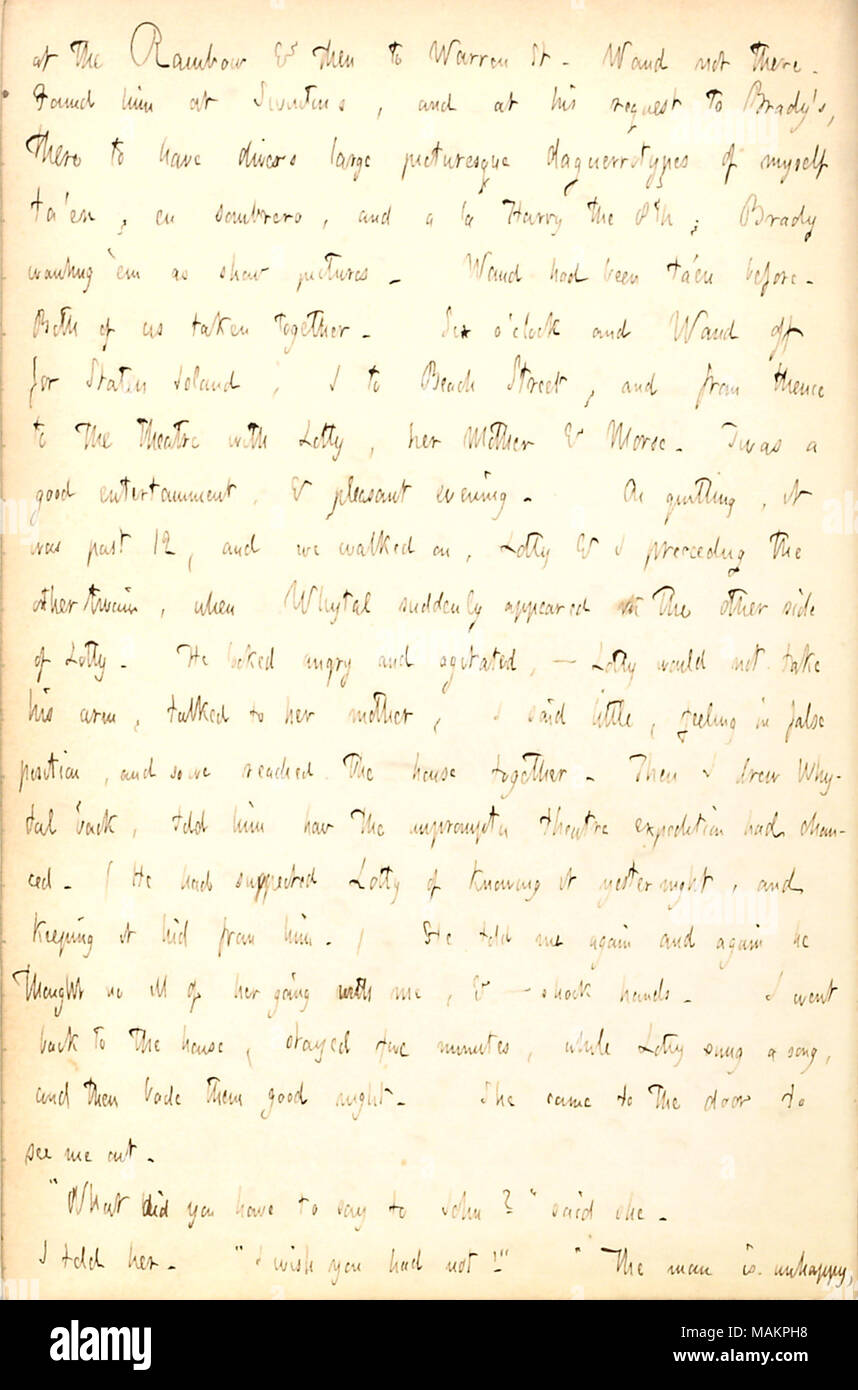 at the Rainbow & then to Warren St. Waud not there.
Found him at Swinton's, and at his request to Brady's,
there to have divers large picturesque daguerrotypes of myself
ta'en, en sombrero, and a la Harry the 8th; Brady
wanting 'em as show pictures. Waud had been ta'en before.
Both of us taken together. Six o'clock and Waud off
for Staten Island, I to Beach Street, and from thence
to the theatre with Lotty, her Mother & Morse. Twas a
good entertainment, & pleasant evening. At quitting, it
was past 12, and we walked on, Lotty & I preceeding the
other twain, when Whytal suddenly appeared at the other side
of Lotty. He looked angry and agitated, — Lotty would not take
his arm, talked to her mother, I said little, feeling in false
position, and so we reached the house together. Then I drew Why-
tal back, told him how the impromptu theatre expedition had chan-
ced. (He had suspected Lotty of knowing it yesternight, and
keeping it hid from him.) He told me again and again he
thought no ill of her going with me, & — shook hands. I went
back to the house, stayed five minutes, while Lotty sung a song,
and then bade them good night. She came to the door to
see me out.
"What did you have to say to John?" said she.
I told her. "I wish you had not!" "The man is unhappy,
alamy
alamy
Image ID: MAKPH8
www.alamy.com